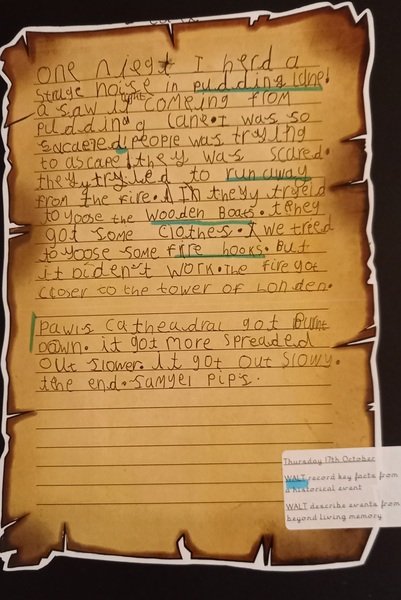 one niegt I herd a
strage noise in pudding lane!
a saw light comeing from
pudding lane. I was so
people was trying
to ascape they was scared.
they tryied to run away
from the fire. they tryeid
to yoose the wooden Boats. they
got some clothes. we tried
to yoose some fire hooks. But
it Dident work. The fire got
closer to the tower of London.
pawls catheadral got Burnt
Down. it got more spreaded
out slower. It got out slowy.
the end. samyel pip's.
Thursday 17th October
WALT record key facts from
a historical event
WALT describe events from
beyond living memory